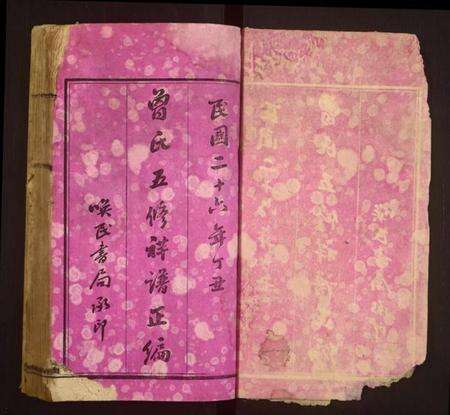 民國二十六年丁丑
曾氏五修族譜正編
喚民書局承印